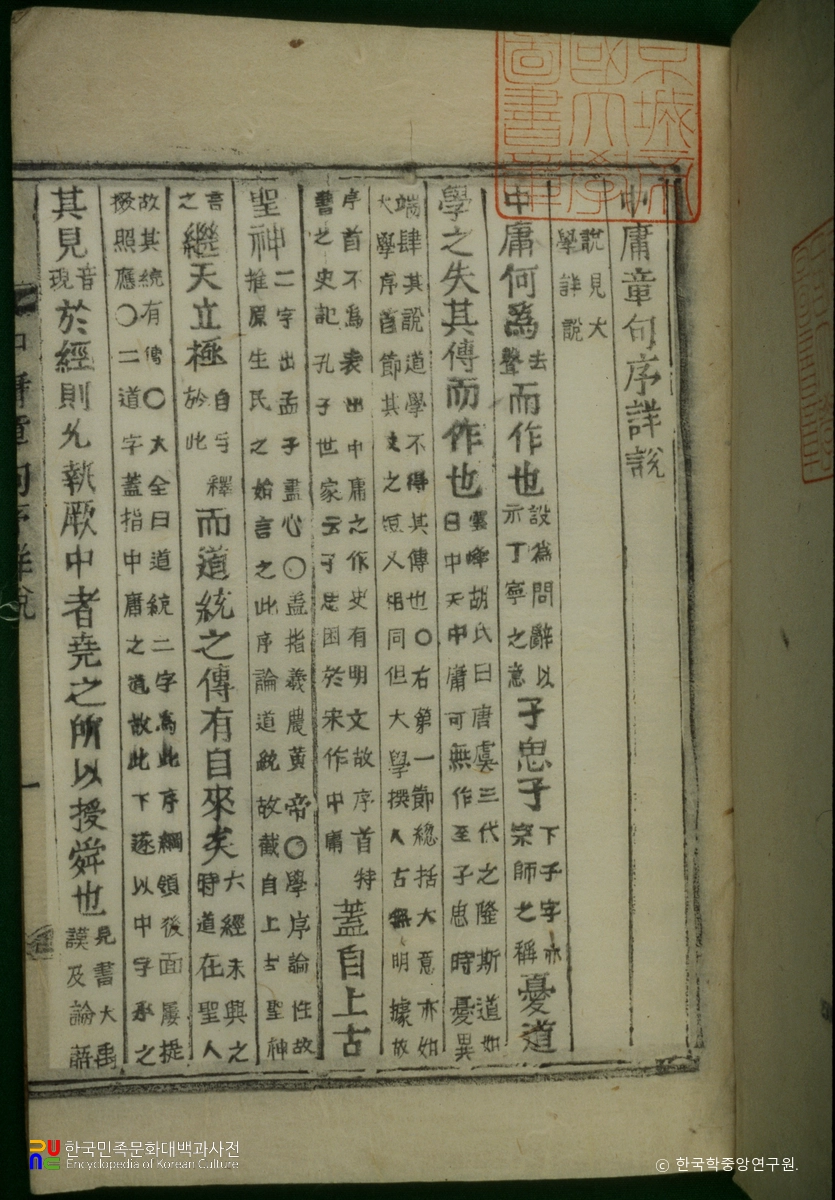 中庸章句序詳說
說見大學詳說
中庸何爲去聲而作也設爲問辭以示丁寧之意子思子下子字亦宗師之稱憂道
學之失其傳而作也雲峰胡氏曰唐虞三代之隆斯道如日中天中庸可無作至子思時憂異
端肆其說道學不得其傳也〇右第一節總括大意亦如大學序首節其文之短又相同但大學撰人古無明據故
序首不爲表出中庸之作史有明文故序首特書之史記孔子世家云子思困於宋作中庸蓋自上古
聖神二字出孟子盡心〇蓋指羲農黃帝〇學序論性故推原生民之始言之此序論道統故截自上古聖神
言之繼天立極自字釋於此而道統之傳有自來矣六經未興之時道在聖人
故其統有傳〇大全曰道統二字爲此序綱領後面屢提掇照應〇二道字蓋指中庸之道故此下遂以中字承之
其見音現於經則允執厥中者堯之所以授舜也見書大禹謨及論語
中庸章句序詳說 一
한국민족문화대백과사전
Encyclopedia of Korean Culture
© 한국학중앙연구원.